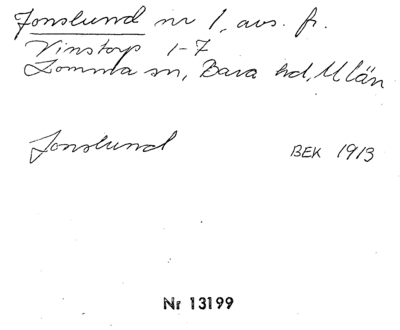 Jonslund nr 1, avs. fr.
Vinstorp 1-7
Lomma sn, Bara hd, M län
Jonslund BEK 1913
Nr 13199